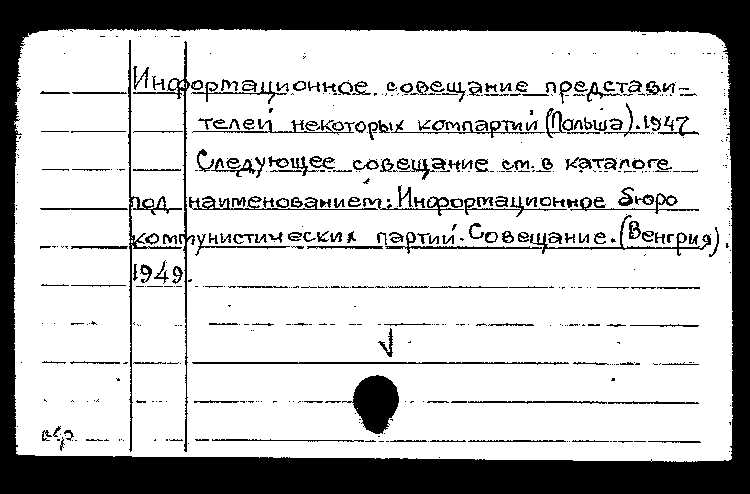 Информационное совещание представи-
телей некоторых компартий (Польша). 1947
Следующее совещание см. в каталоге
под наименованием: Информационное бюро
коммунистических партий. Совещание. (Венгрия).
1949.